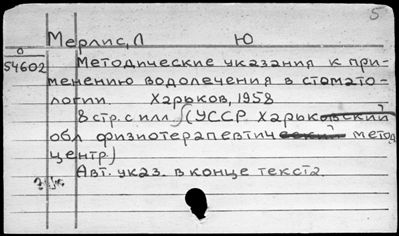 5
Мерлис, Л Ю
54602
Методические указания к при-
менению водолечения в стомато-
логии. Харьков, 1958
8 стр. с илл. (УССР Харьковский
обл физиотерапевтический метод
центр)
Авт. указ. в конце текста.